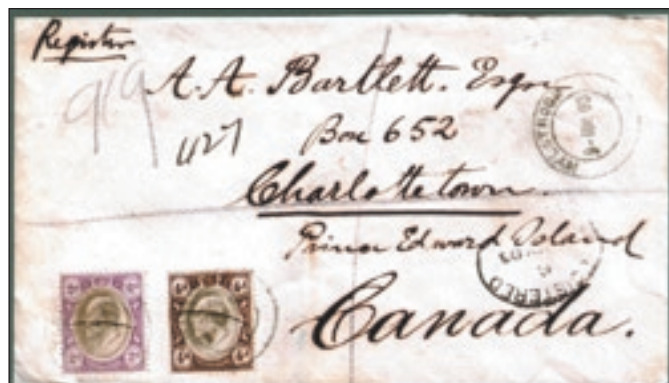 Register
919
A. A. Bartlett. Esqr
Box 652
Charlottetown
Prince Edward Island
Canada.